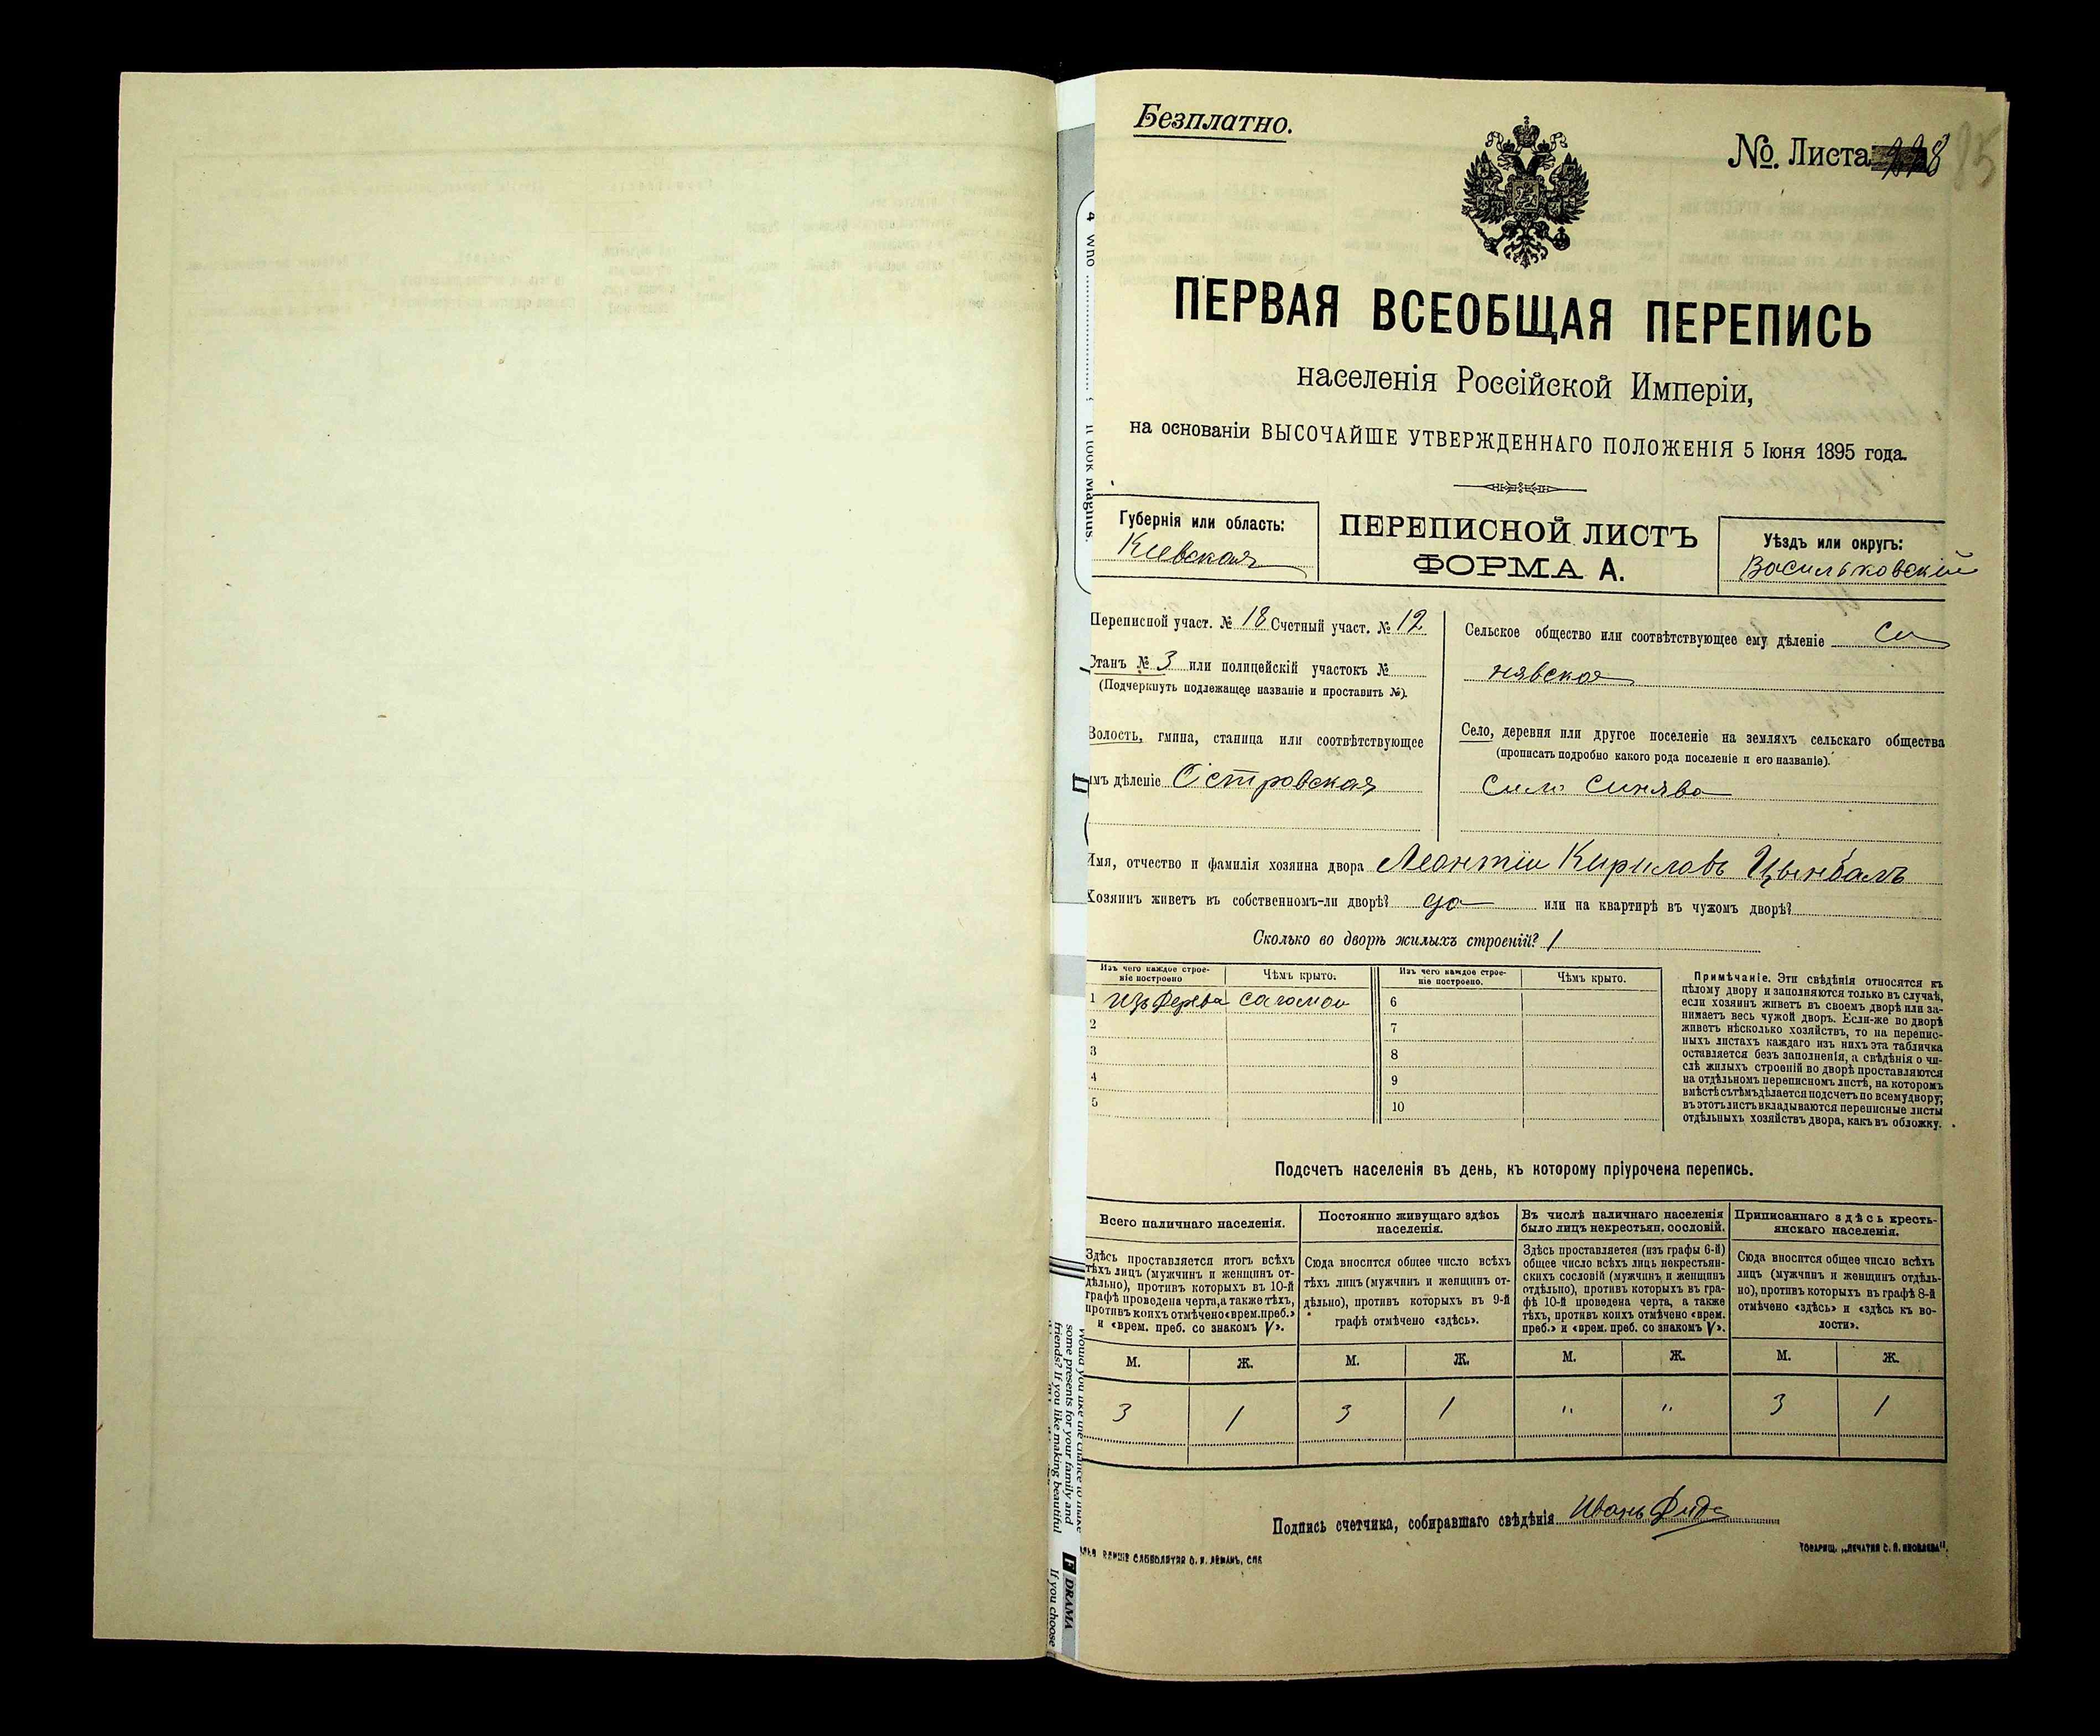 Безплатно.
№ Листа 228
85
ПЕРВАЯ ВСЕОБЩАЯ ПЕРЕПИСЬ
населенія Россійской Имперіи,
на основаніи ВЫСОЧАЙШЕ УТВЕРЖДЕННАГО ПОЛОЖЕНІЯ 5 Іюня 1895 года.
Губернія или область:
Киевская
ПЕРЕПИСНОЙ ЛИСТЪ
ФОРМА А.
Уѣздъ или округъ:
Васильковскій
Переписной участ. № 18 Счетный участ. № 12
Станъ № 3 или полицейскій участокъ №
(Подчеркнуть подлежащее названіе и проставить №).
Волость, гмина, станица или соотвѣтствующее
имъ дѣленіе Островская
Сельское общество или соотвѣтствующее ему дѣленіе Си
нявское
Село, деревня или другое поселеніе на земляхъ сельскаго общества
(прописать подробно какого рода поселеніе и его названіе).
Село Синява
Имя, отчество и фамилія хозяина двора Леонтій Кириловъ Цымбалъ
Хозяинъ живетъ въ собственномъ-ли дворѣ? да или на квартирѣ въ чужомъ дворѣ?
Сколько во дворѣ жилыхъ строеній? 1
Изъ чего каждое строе-
ніе построено
Чѣмъ крыто.
Изъ чего каждое строе-
ніе построено.
Чѣмъ крыто.
1 изъ дерева саломои 6
2 7
3 8
4 9
5 10
Примѣчаніе. Эти свѣдѣнія относятся къ
цѣлому двору и заполняются только въ случаѣ,
если хозяинъ живетъ въ своемъ дворѣ или за-
нимаетъ весь чужой дворъ. Если-же во дворѣ
живетъ нѣсколько хозяйствъ, то на перепис-
ныхъ листахъ каждаго изъ нихъ эта табличка
оставляется безъ заполненія, а свѣдѣнія о чи-
слѣ жилыхъ строеній во дворѣ проставляются
на отдѣльномъ переписномъ листѣ, на которомъ
вмѣстѣ съ тѣмъ дѣлается подсчетъ по всему двору;
въ этотъ листъ вкладываются переписные листы
отдѣльныхъ хозяйствъ двора, какъ въ обложку.
Подсчетъ населенія въ день, къ которому пріурочена перепись.
Всего наличнаго населенія.
Здѣсь проставляется итогъ всѣхъ
тѣхъ лицъ (мужчинъ и женщинъ от-
дѣльно), противъ которыхъ въ 10-й
графѣ проведена черта, а также тѣхъ,
противъ коихъ отмѣчено «врем. преб.»
и «врем. преб. со знакомъ V».
Постоянно живущаго здѣсь
населенія.
Сюда вносится общее число всѣхъ
тѣхъ лицъ (мужчинъ и женщинъ от-
дѣльно), противъ которыхъ въ 9-й
графѣ отмѣчено «здѣсь».
Въ числѣ наличнаго населенія
было лицъ некрестьян. сословій.
Здѣсь проставляется (изъ графы 6-й)
общее число всѣхъ лицъ некрестьян-
скихъ сословій (мужчинъ и женщинъ
отдѣльно), противъ которыхъ въ гра-
фѣ 10-й проведена черта, а также
тѣхъ, противъ коихъ отмѣчено «врем.
преб.» и «врем. преб. со знакомъ V».
Приписаннаго здѣсь кресть-
янскаго населенія.
Сюда вносится общее число всѣхъ
лицъ (мужчинъ и женщинъ отдѣль-
но), противъ которыхъ въ графѣ 8-й
отмѣчено «здѣсь» и «здѣсь къ во-
лости».
М. Ж. М. Ж. М. Ж. М. Ж.
3 1 3 1 " " 3 1
Подпись счетчика, собиравшаго свѣдѣнія Иванъ
О. И. ЛЕМАНЪ, СПБ
ТОВАРИЩ. „ПЕЧАТНЯ С. П. ЯКОВЛЕВА".
4 Who
it took Magnus.
would you like the chance to make
some presents for your family and
friends? If you like making beautiful
F DRAMA
If you choose